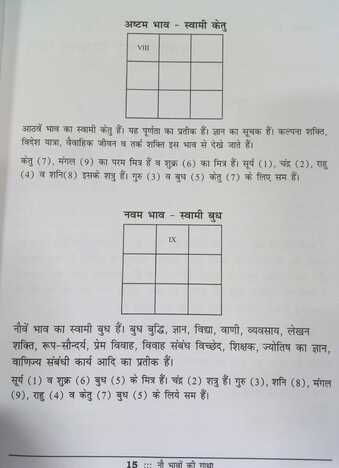 अष्टम भाव - स्वामी केतु
VIII
आठवें भाव का स्वामी केतु हैं। यह पूर्णता का प्रतीक हैं। ज्ञान का सूचक हैं। कल्पना शक्ति,
विदेश यात्रा, वैवाहिक जीवन व तर्क शक्ति इस भाव से देखे जाते हैं।
केतु (7), मंगल (9) का परम मित्र हैं व शुक्र (6) का मित्र हैं। सूर्य (1), चंद्र (2), राहु
(4) व शनि(8) इसके शत्रु हैं। गुरु (3) व बुध (5) केतु (7) के लिए सम हैं।
नवम भाव - स्वामी बुध
IX
नौवें भाव का स्वामी बुध हैं। बुध बुद्धि, ज्ञान, विद्या, वाणी, व्यवसाय, लेखन
शक्ति, रूप-सौन्दर्य, प्रेम विवाह, विवाह संबंध विच्छेद, शिक्षक, ज्योतिष का ज्ञान,
वाणिज्य संबंधी कार्य आदि का प्रतीक हैं।
सूर्य (1) व शुक्र (6) बुध (5) के मित्र हैं। चंद्र (2) शत्रु हैं। गुरु (3), शनि (8), मंगल
(9), राहु (4) व केतु (7) बुध (5) के लिये सम हैं।
15 ::: नौ भावों की गाथा